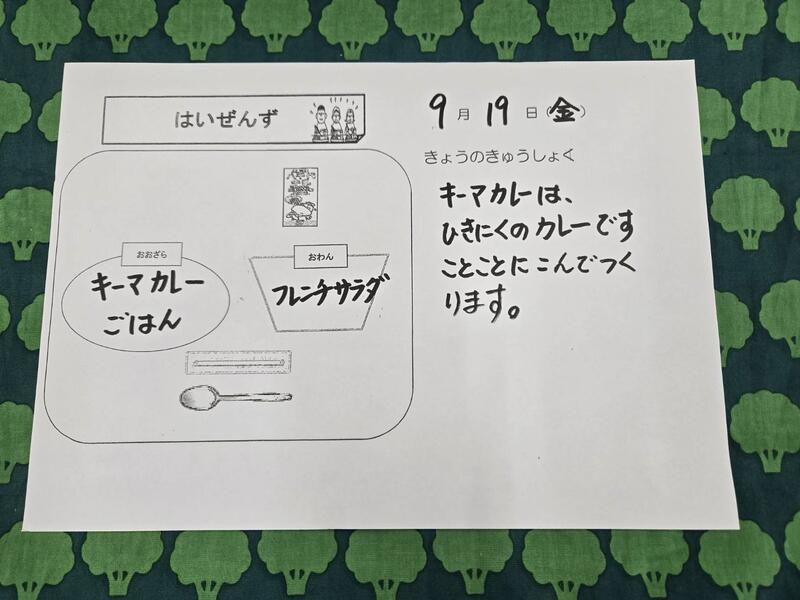 はいぜんず
おおざら
キーマカレー
ごはん
おわん
フレンチサラダ
9月19日(金)
きょうのきゅうしょく
キーマカレーは、
ひきにくのカレーです
ことことにこんでつく
ります。